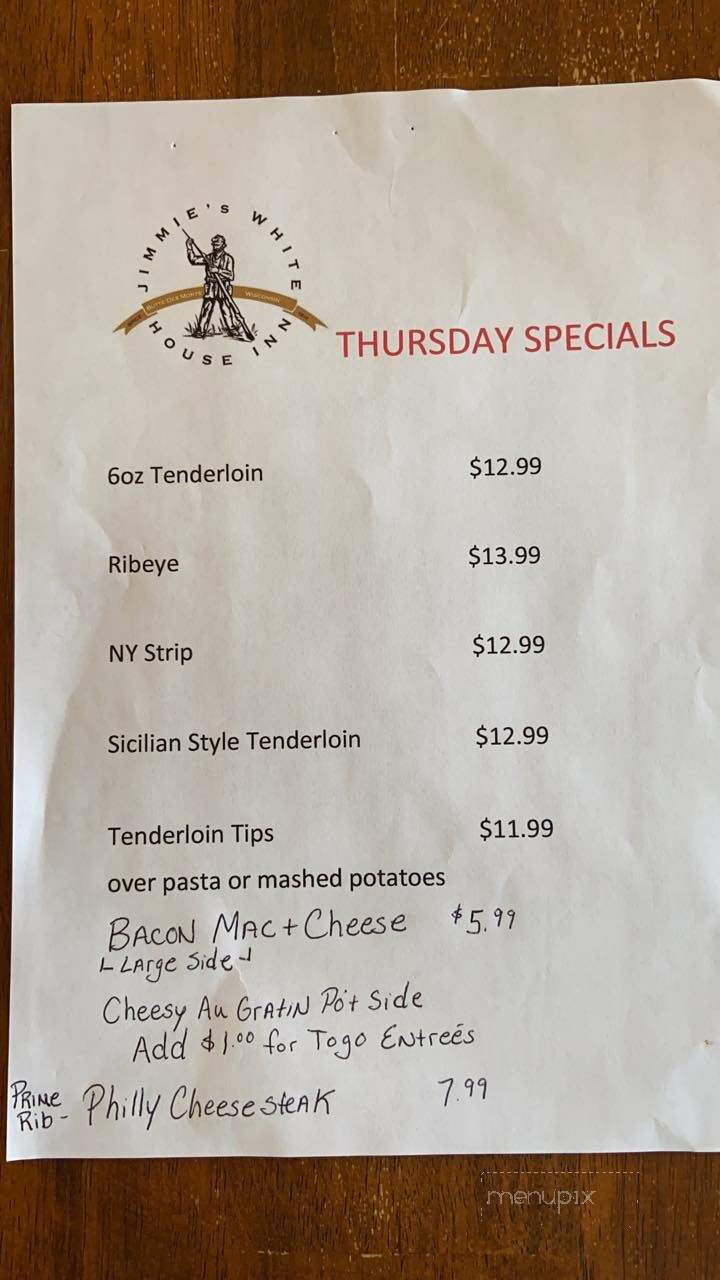 JIMMIE'S WHITE
HOUSE INN
BUTTE DES MORTS WISCONSIN
THURSDAY SPECIALS
6oz Tenderloin $12.99
Ribeye $13.99
NY Strip $12.99
Sicilian Style Tenderloin $12.99
Tenderloin Tips $11.99
over pasta or mashed potatoes
BACON MAC + Cheese $5.99
LARge Side
Cheesy Au GRAtiN Pot Side
Add $1.00 for Togo ENtreés
PRIME Rib - Philly Cheese steAK 7.99
menupix